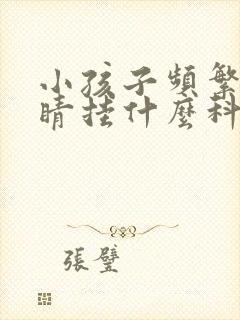 小孩子頻繁
睛挂什麼科
張璧